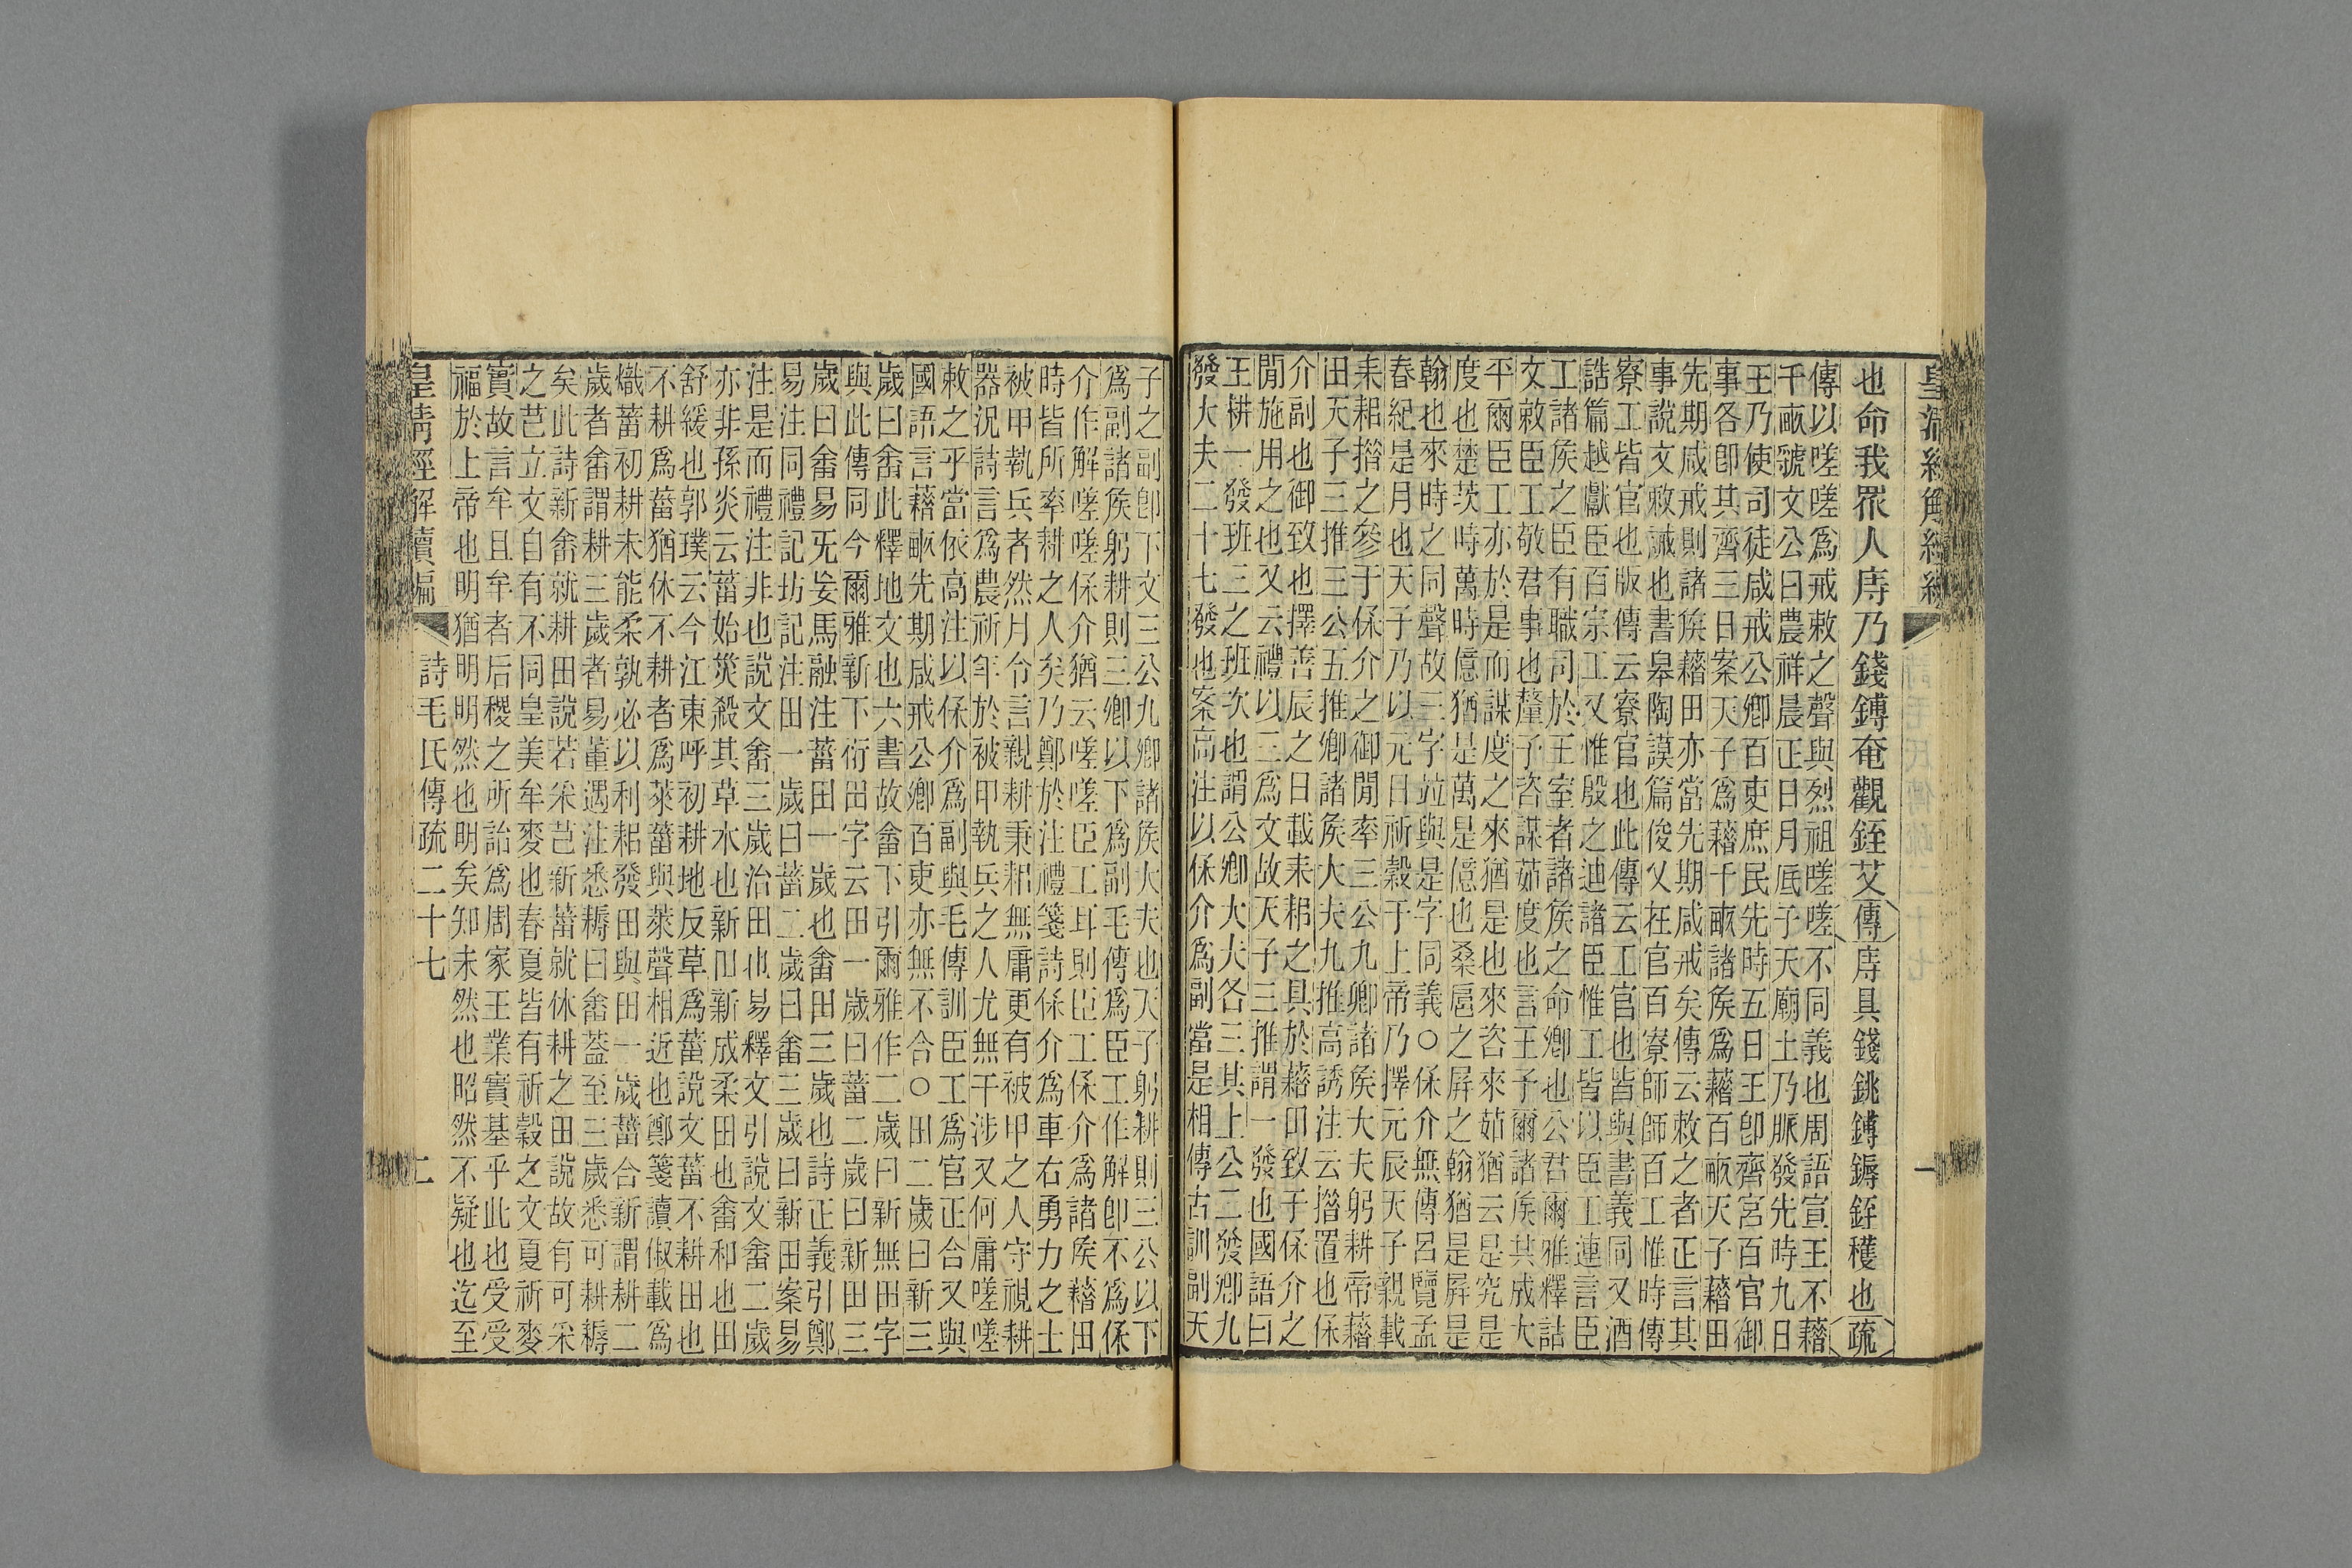 皇清經解續編
一
也命我眾人庤乃錢鎛奄觀銍艾傳庤具錢銚鎛鎒銍穫也疏
傳以嗟嗟爲戒敕之聲與烈祖嗟嗟不同義也周語宣王不藉
千畝虢文公曰農祥晨正日月厎于天廟土乃脈發先時九日
王乃使司徒咸戒公卿百吏庶民先時五日王卽齊宮百官御
事各卽其齊三日案天子爲藉千畝諸矦爲藉百畝天子藉田
先期咸戒則諸矦藉田亦當先期咸戒矣傳云敕之者正言其
事說文敕誡也書皋陶謨篇俊乂在官百寮師師百工惟時傳
寮工皆官也版傳云寮官也此傳云工官也皆與書義同又酒
誥篇越獻臣百宗工又惟殷之迪諸臣惟工皆以臣工連言臣
工諸矦之臣有職司於王室者諸矦之命卿也公君爾雅釋詁
文敕臣工敬君事也釐子咨謀茹度也言王子爾諸矦其成大
平爾臣工亦於是而謀度之來猶是也來咨來茹猶云是究是
度也楚茨時萬時億猶是萬是億也桑扈之屛之翰猶是屛是
翰也來時之同聲故三字竝與是字同義○保介無傳呂覽孟
春紀是月也天子乃以元日祈穀于上帝乃擇元辰天子親載
耒耜措之參于保介之御閒率三公九卿諸矦大夫躬耕帝藉
田天子三推三公五推卿諸矦大夫九推高誘注云措置也保
介副也御致也擇善辰之日載耒耜之具於藉田致于保介之
閒施用之也又云禮以三爲文故天子三推謂一發也國語曰
王耕一發班三之班次也謂公卿大夫各三其上公二發卿九
發大夫二十七發也案高注以保介爲副當是相傳古訓副天
子之副卽下文三公九卿諸矦大夫也天子躬耕則三公以下
爲副諸矦躬耕則三卿以下爲副毛傳爲臣工作解卽不爲保
介作解嗟嗟保介猶云嗟嗟臣工耳則臣工保介爲諸矦藉田
時皆所率耕之人矣乃鄭於注禮箋詩保介爲車右勇力之士
被甲執兵者然月令言親耕秉耜無庸更有被甲之人守視耕
器況詩言爲農祈年於被甲執兵之人尤無干涉又何庸嗟嗟
敕之乎當依高注以保介爲副與毛傳訓臣工爲官正合又與
國語言藉畝先期咸戒公卿百吏亦無不合○田二歲曰新三
歲曰畬此釋地文也六書故畬下引爾雅作二歲曰新無田字
與此傳同今爾雅新下衍田字云田一歲曰菑二歲曰新田三
歲曰畬易旡妄馬融注菑田一歲也畬田三歲也詩正義引鄭
易注同禮記坊記注田一歲曰菑二歲曰畬三歲曰新田案易
注是而禮注非也說文畬三歲治田也易釋文引說文畬二歲
亦非孫炎云菑始災殺其草木也新田新成柔田也畬和也田
舒緩也郭璞云今江東呼初耕地反草爲菑說文菑不耕田也
不耕爲菑猶休不耕者爲萊菑與萊聲相近也鄭箋讀俶載爲
熾菑初耕未能柔孰必以利耜發田與田一歲菑合新謂耕二
歲者畬謂耕三歲者易董遇注悉耨曰畬蓋至三歲悉可耕耨
矣此詩新畬就耕田說若采芑新菑就休耕之田說故有可采
之芑立文自有不同皇美牟麥也春夏皆有祈穀之文夏祈麥
實故言牟且牟者后稷之所詒爲周家王業實基乎此也受受
福於上帝也明猶明明然也明矣知未然也昭然不疑也迄至
皇清經解續編
詩毛氏傳疏二十七
二